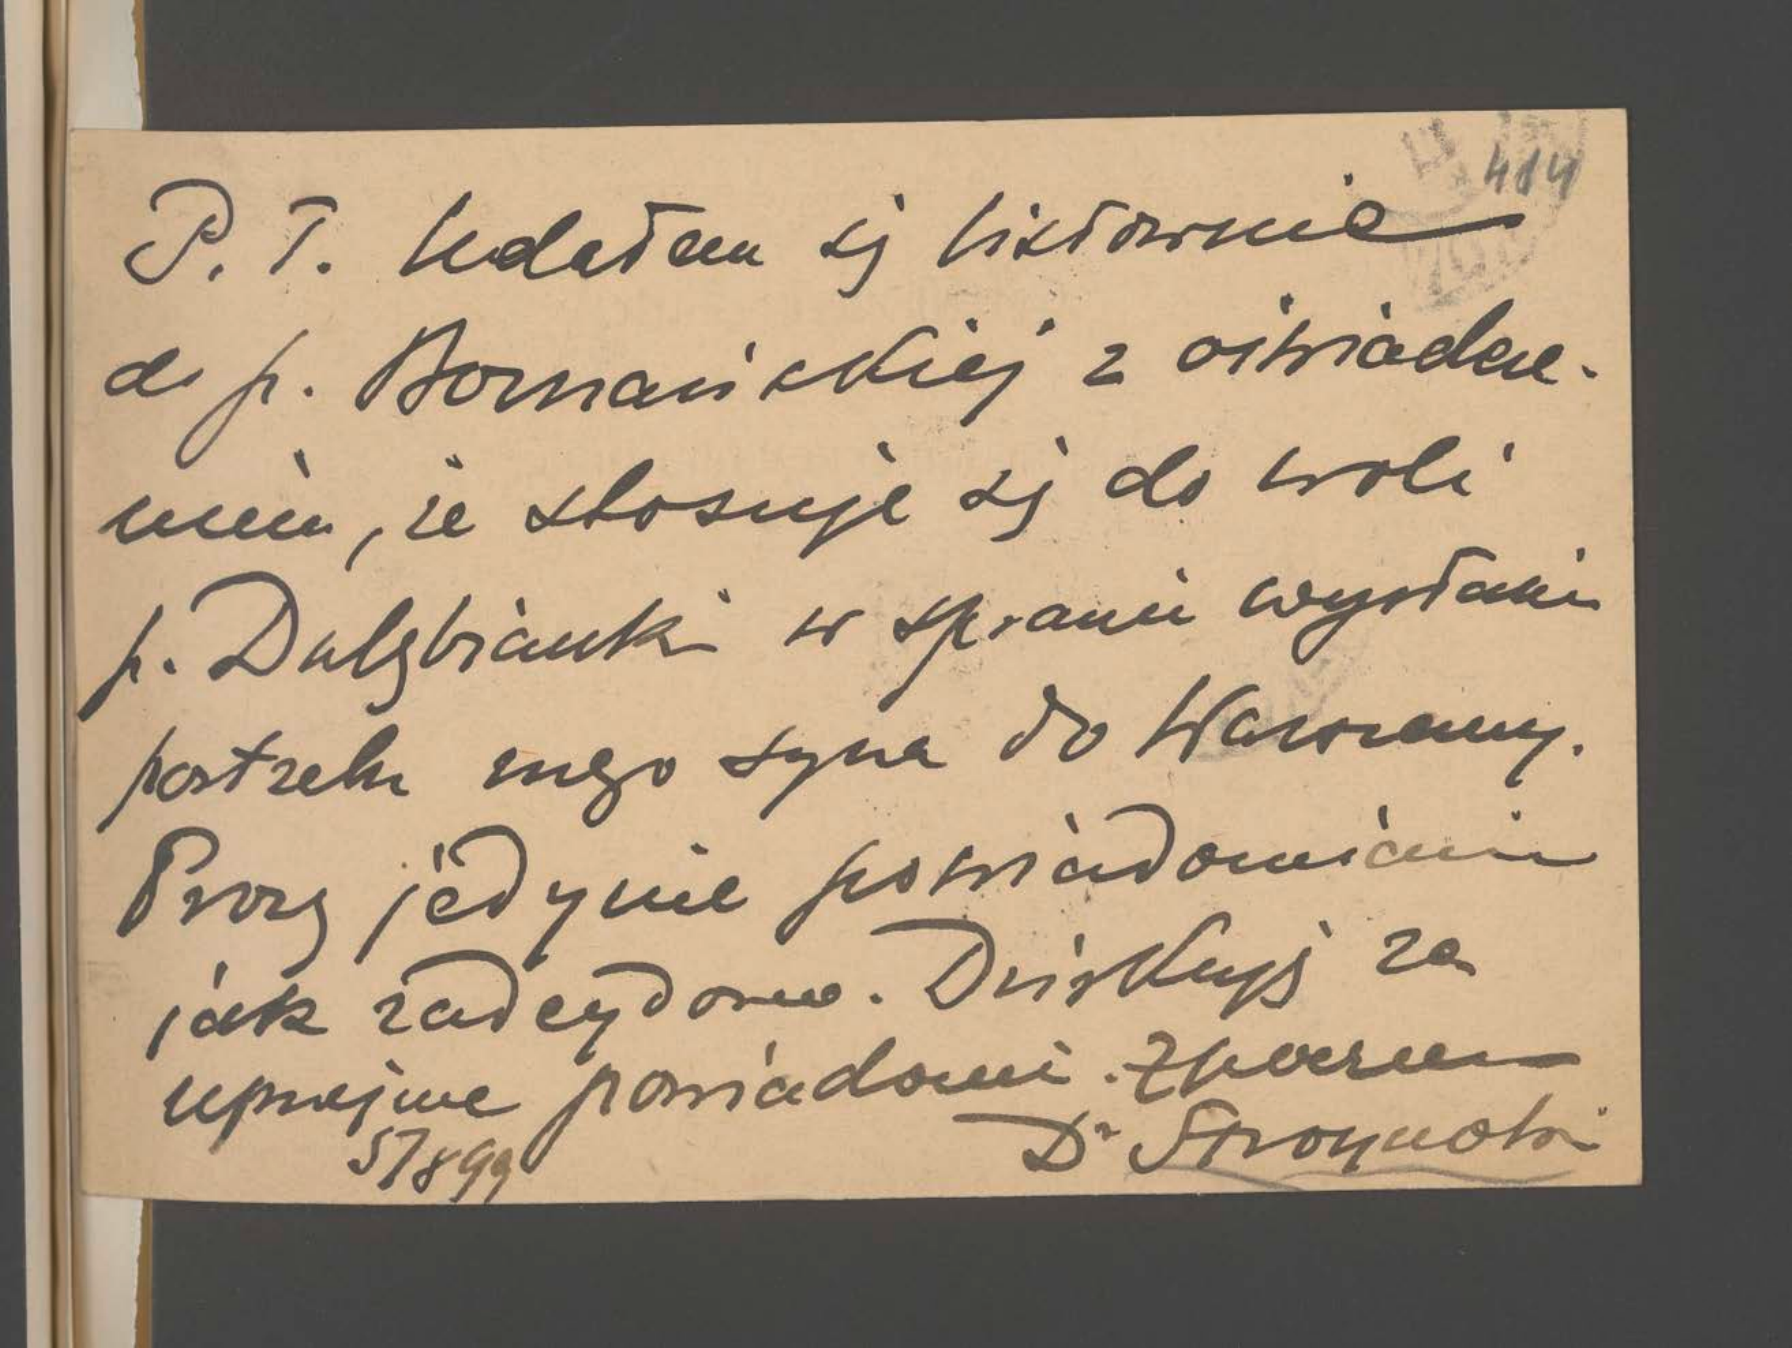 414
P. T. Udałem się listownie
do p. Bornańskiej z oświadcze-
niem, że stosuję się do woli
p. Dulębianki w sprawie wysłania
portretu mego syna do Warszawy.
Proszę jedynie powiadomienie
jak zadcydowano. Dziękuję za
uprzejme powiadomi. Z powaz
5/8 99
Dr Stroynowski